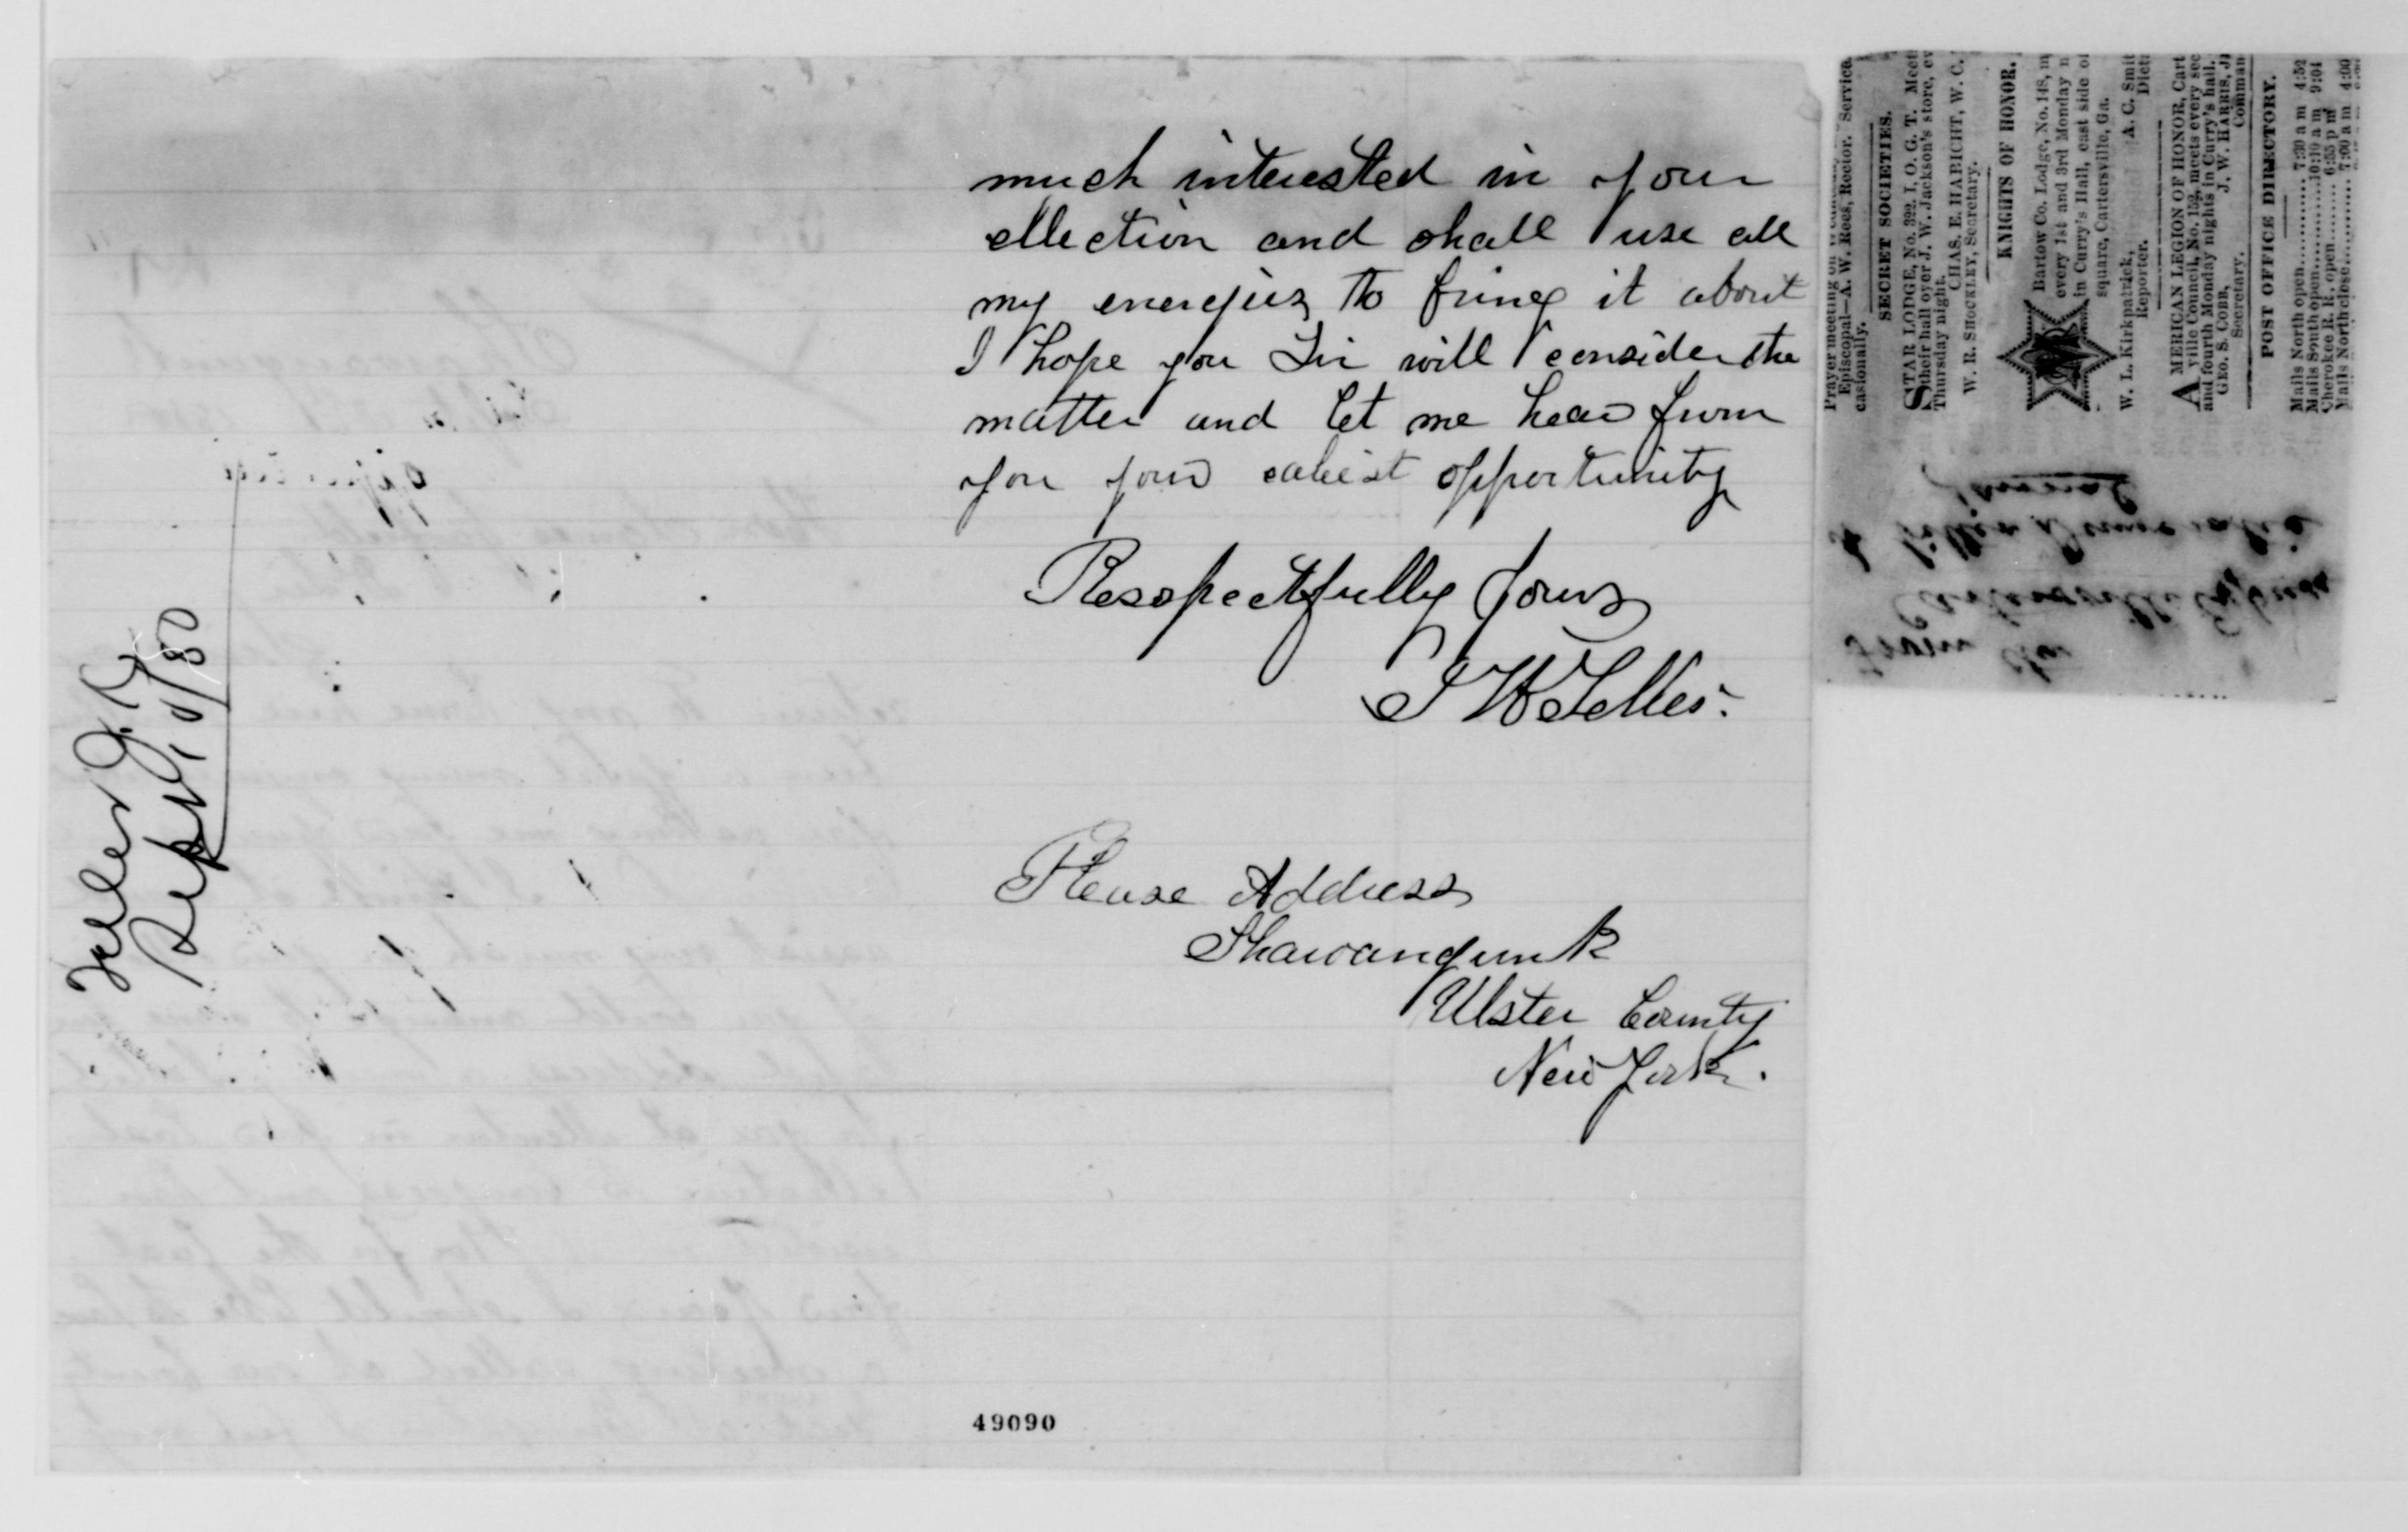 much interested in your
ellection and shall use all
my energies to bring it about
I hope you Sir will consider the
matter and let me hear from
you your earliest opportunity
Respectfully Yours
J W Teller.
Please Address
Shawangunk
Ulster County
New York.
49090
Teller J. W.
Sept 10/80
Prayer meeting on
Episcopal—A. W. Rees, Rector. Service
casionally.
SECRET SOCIETIES.
STAR LODGE, No. 322, I. O. G. T. Meet
their hall over J. W. Jackson's store, ev
Thursday night.
CHAS. E. HABICHT, W. C.
W. R. SHOCKLEY, Secretary.
KNIGHTS OF HONOR.
Bartow Co. Lodge, No. 148, m
every 1st and 3rd Monday n
in Curry's Hall, east side of
square, Cartersville, Ga.
A. C. Smit
W. L. Kirkpatrick, Dicta
Reporter.
AMERICAN LEGION OF HONOR, Cart
ville Council, No. 152, meets every sec
and fourth Monday nights in Curry's hall.
GEO. S. COBB, J. W. HARRIS, JR
Secretary. Comman
POST OFFICE DIRECTORY.
Mails North open 7:30 a m 4:52
Mails South open 10:10 a m 9:04
Cherokee R. R. open 6:55 p m
Mails North close 7:00 a m 4:00
From the
Cartersville Express
A bitter Democratic
Journal